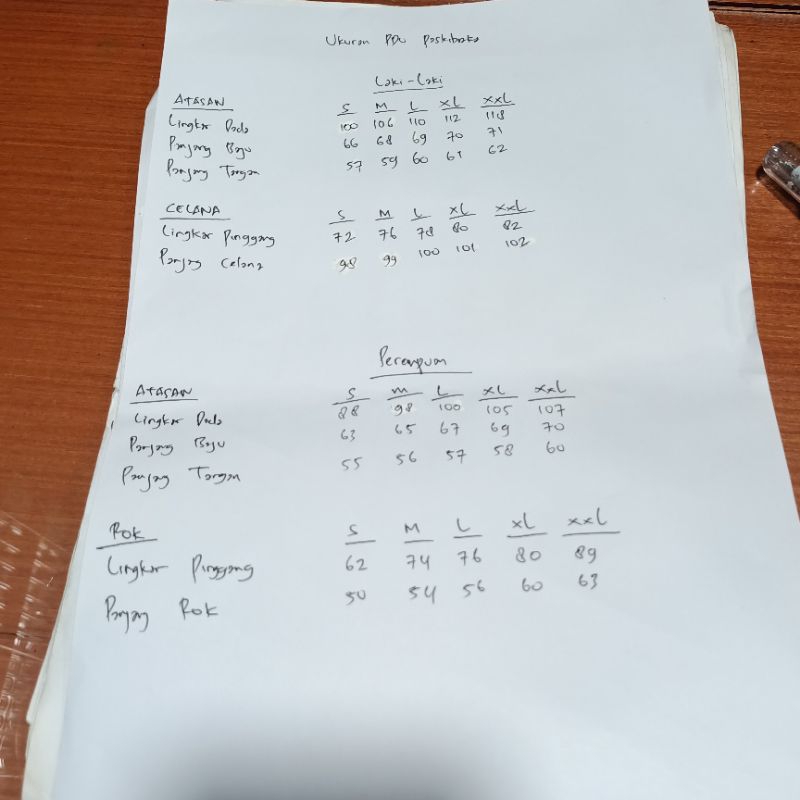 Ukuran PDU Paskibraka
Laki-Laki
ATASAN S M L XL XXL
Lingkar Dada 100 106 110 112 118
Panjang Baju 66 68 69 70 71
Panjang Tangan 57 59 60 61 62
CELANA S M L XL XXL
Lingkar Pinggang 72 76 78 80 82
Panjang Celana 98 99 100 101 102
Perempuan
ATASAN S M L XL XXL
Lingkar Dada 88 98 100 105 107
Panjang Baju 63 65 67 69 70
Panjang Tangan 55 56 57 58 60
Rok S M L XL XXL
Lingkar Pinggang 62 74 76 80 89
Panjang Rok 50 54 56 60 63